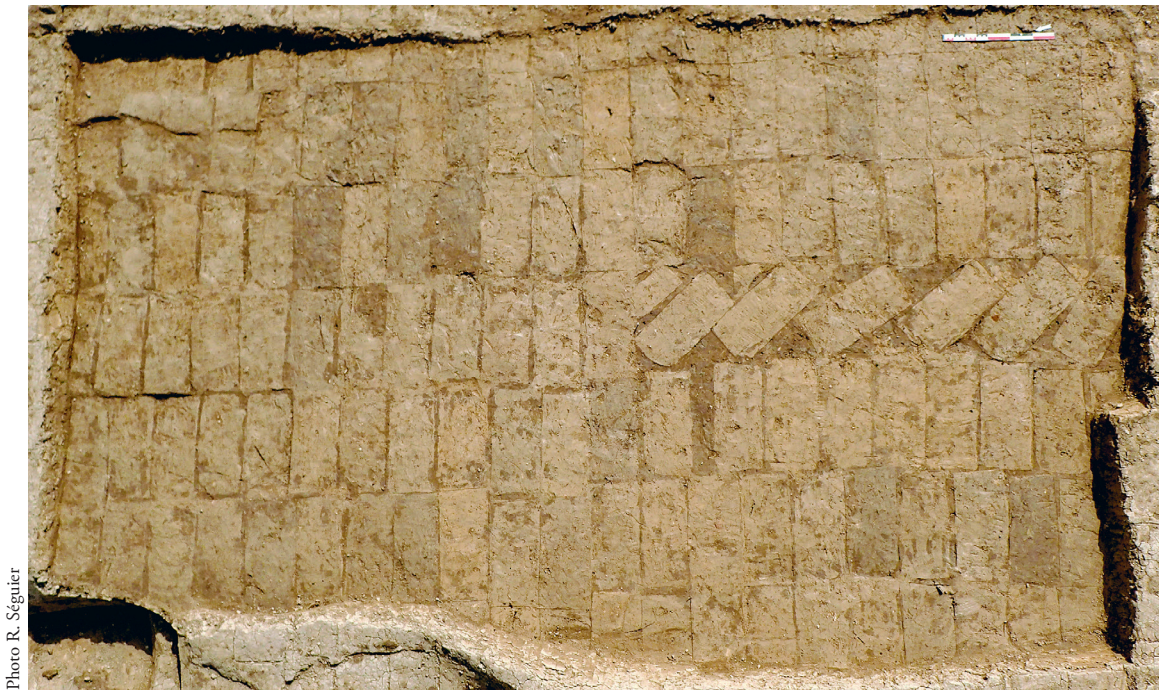 Photo R. Séguier